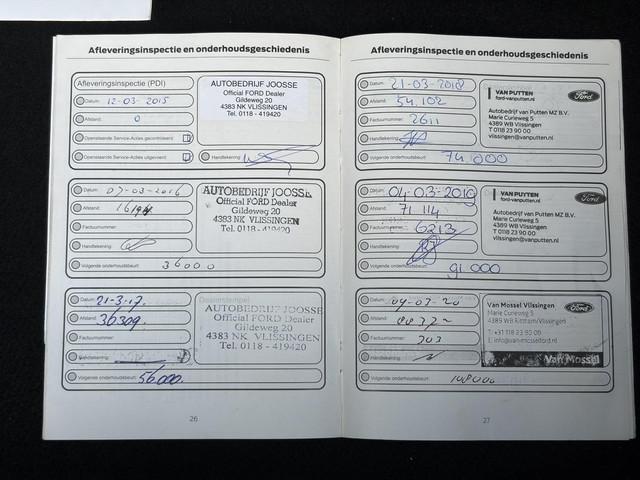 Afleveringsinspectie en onderhoudsgeschiedenis
Afleveringsinspectie (PDI)
Datum: 12-03-2015
Afstand: 0
Openstaande Service-Acties gecontroleerd:
Openstaande Service-Acties uitgevoerd:
AUTOBEDRIJF JOOSSE
Official FORD Dealer
Gildeweg 20
4383 NK VLISSINGEN
Tel. 0118 - 419420
Handtekening:
Datum: 07-03-2016
Afstand:
Factuurnummer:
Handtekening:
Volgende onderhoudsbeurt: 36000
AUTOBEDRIJF JOOSSE
Official FORD Dealer
Gildeweg 20
4383 NK VLISSINGEN
Tel. 0118 - 419420
Datum: 21-3-17.
Afstand: 36309.
Factuurnummer:
Handtekening:
Volgende onderhoudsbeurt: 56000.
Dealerstempel
AUTOBEDRIJF JOOSSE
Official FORD Dealer
Gildeweg 20
4383 NK VLISSINGEN
Tel. 0118 - 419420
26
Afleveringsinspectie en onderhoudsgeschiedenis
Datum: 21-03-2018
Afstand: 54.102
Factuurnummer: 2611
Handtekening:
Volgende onderhoudsbeurt: 74.000
VAN PUTTEN
ford-vanputten.nl
Ford
Autobedrijf van Putten MZ B.V.
Marie Curieweg 5
4389 WB Vlissingen
T 0118 23 90 00
vlissingen@vanputten.nl
Datum: 04-03-2019
Afstand: 71 114
Factuurnummer: 6213
Handtekening:
Volgende onderhoudsbeurt: 91.000
VAN PUTTEN
ford-vanputten.nl
Ford
Autobedrijf van Putten MZ B.V.
Marie Curieweg 5
4389 WB Vlissingen
T 0118 23 90 00
vlissingen@vanputten.nl
Datum: 04-03-20
Afstand:
Factuurnummer: 303
Handtekening:
Volgende onderhoudsbeurt: 108000
Van Mossel Vlissingen
Marie Curieweg 5
4389 WB Ritthem/Vlissingen
Ford
T: +31 118 23 90 00
E. info@van-mosselford.nl
Van Mossel
27